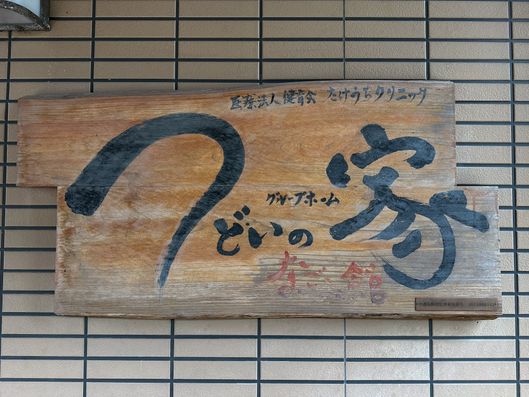 医療法人 健育会 たけうちクリニック
グループホーム
つどいの家